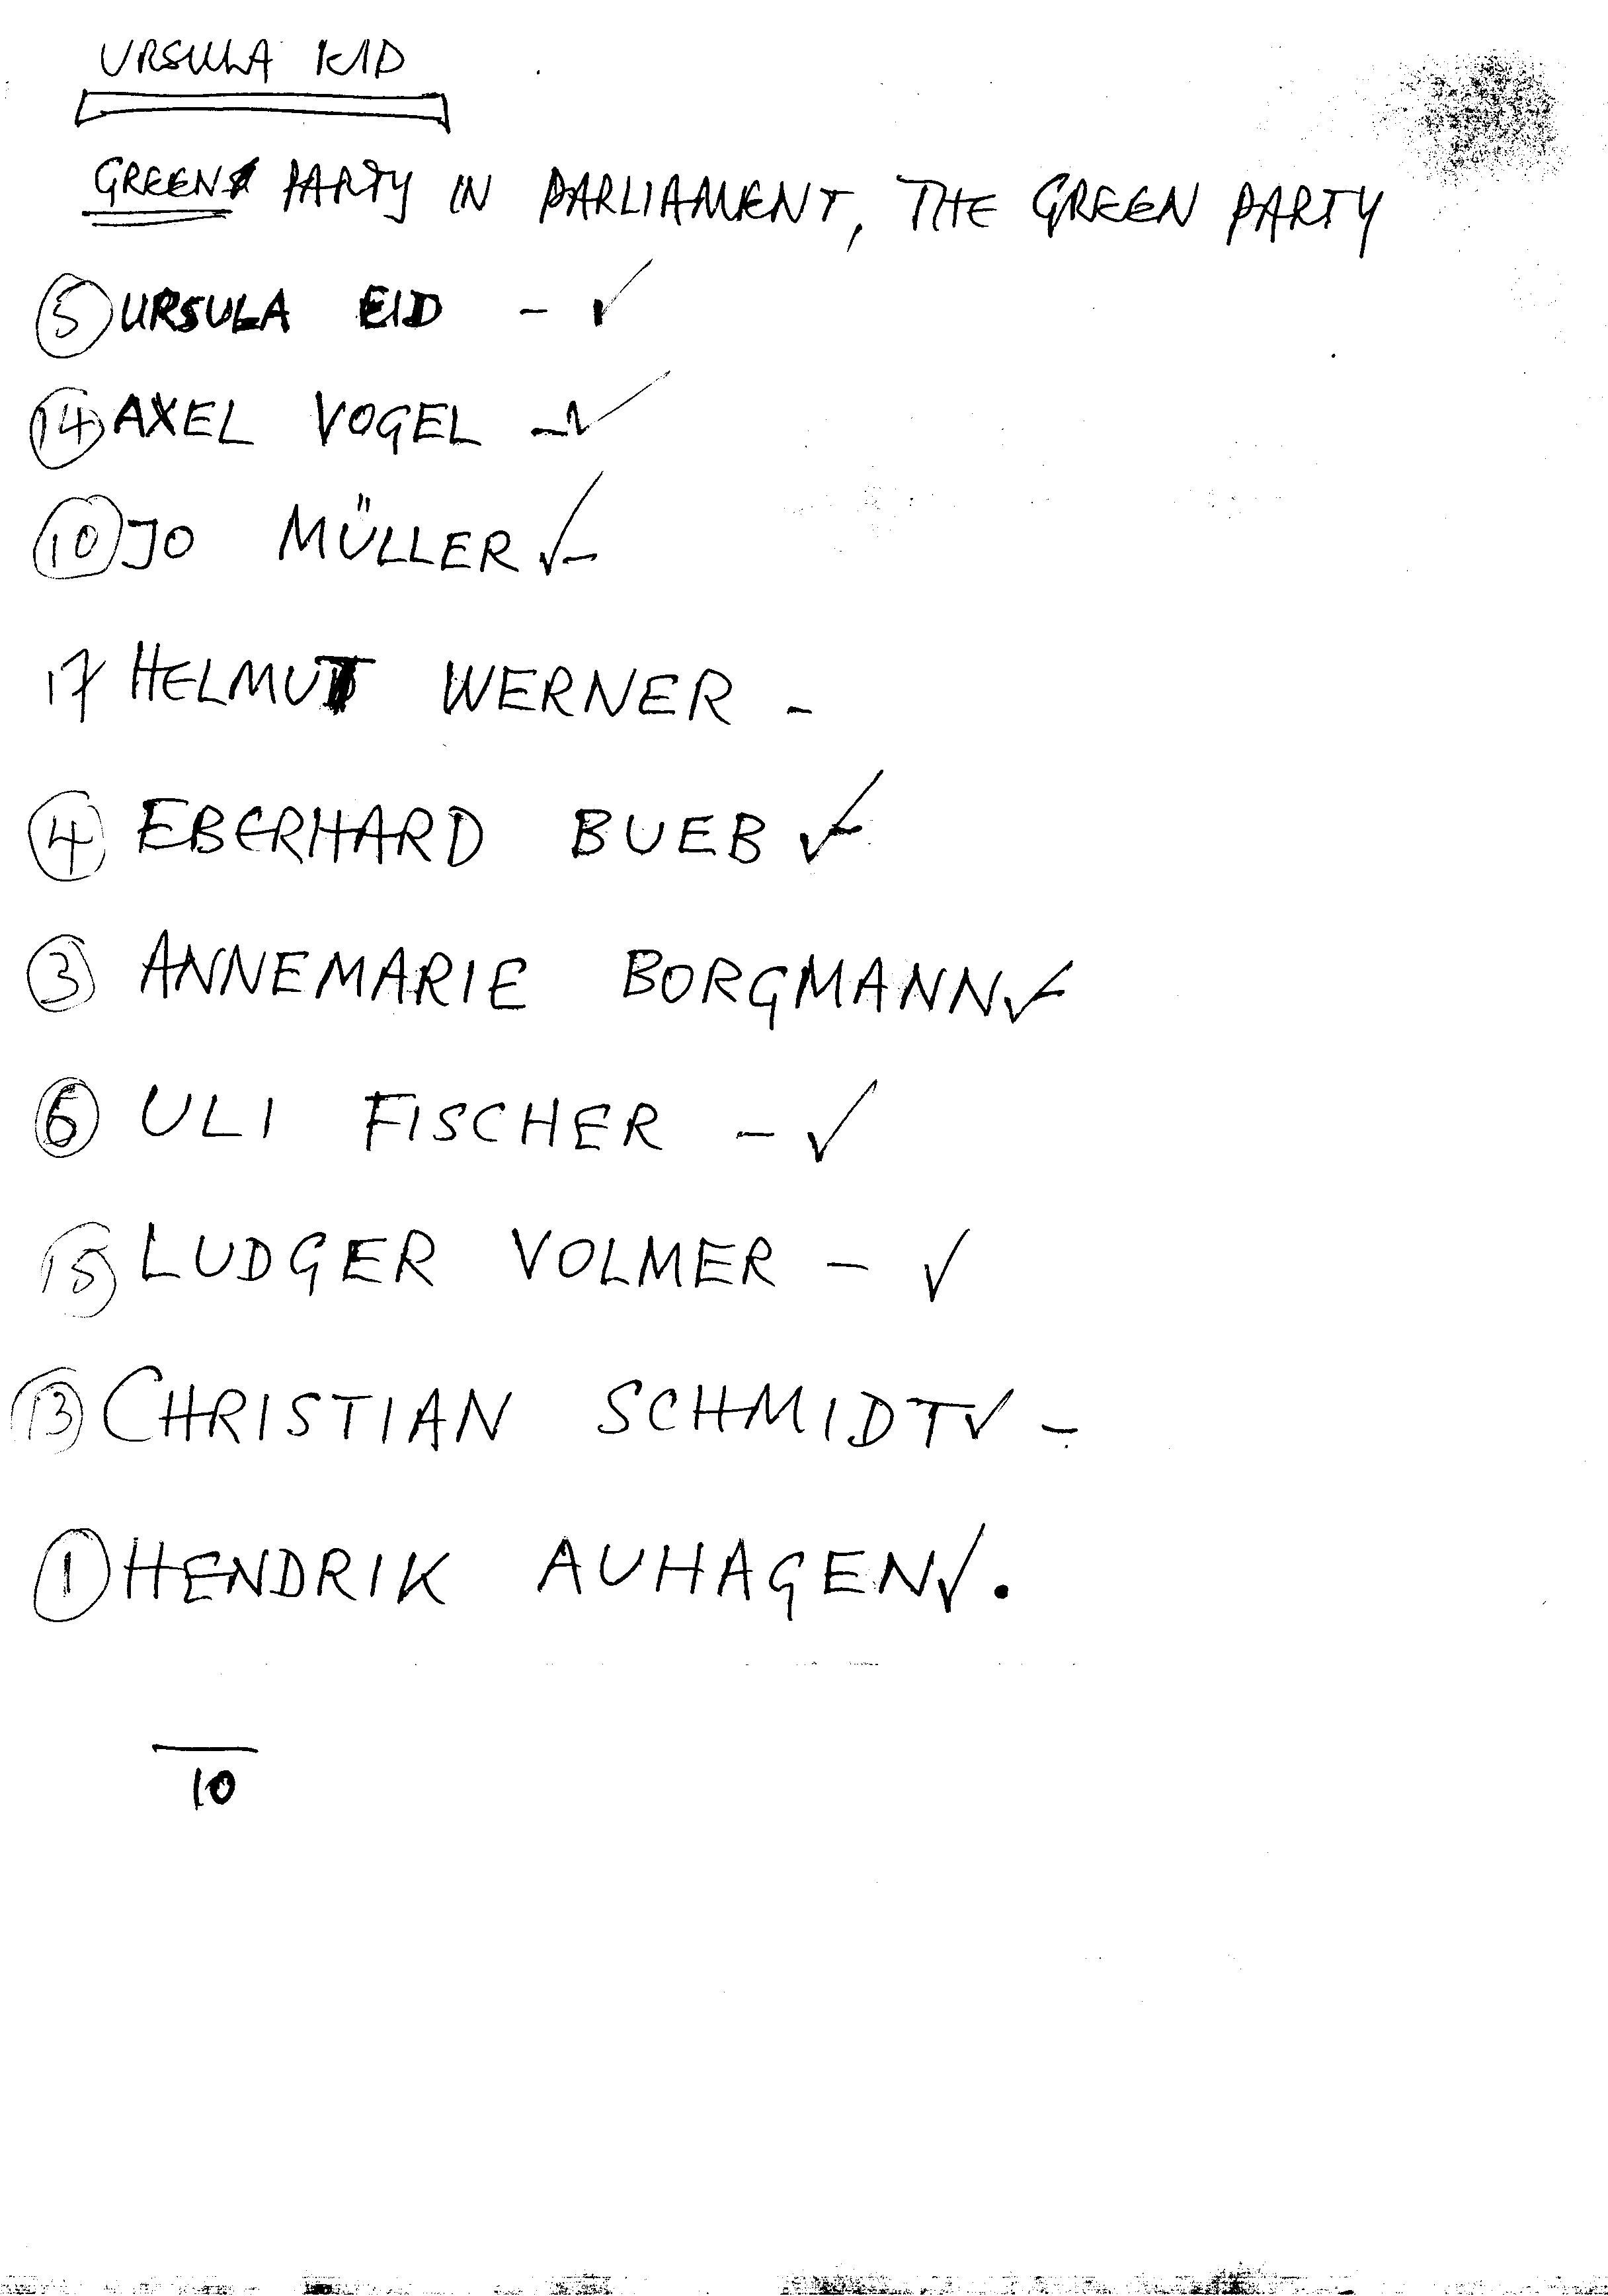 URSULA EID
GREEN PARTY IN PARLIAMENT, THE GREEN PARTY
5 URSULA EID - ✓
14 AXEL VOGEL - ✓
10 JO MÜLLER ✓ -
17 HELMUT WERNER -
4 EBERHARD BUEB ✓ -
3 ANNEMARIE BORGMANN ✓ -
6 ULI FISCHER - ✓
15 LUDGER VOLMER - ✓
13 CHRISTIAN SCHMIDT ✓ -
1 HENDRIK AUHAGEN ✓ .
10